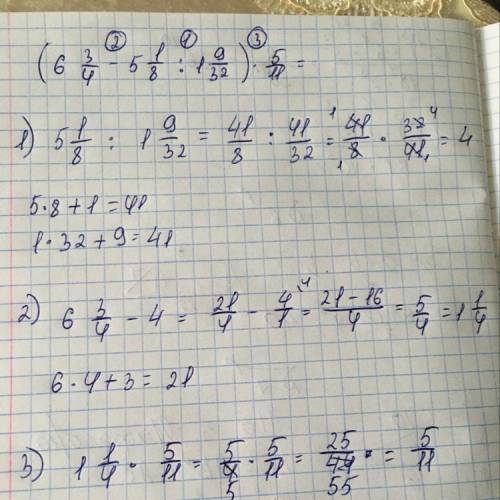 (6 3/4 - 5 1/8 : 1 9/32) · 5/11 =
② ① ③
1) 5 1/8 : 1 9/32 = 41/8 : 41/32 = 41/8 · 32/41 = 4
1 4
1 1
5·8+1=41
1·32+9=41
2) 6 3/4 - 4 = 21/4 - 4/1 = (21-16)/4 = 5/4 = 1 1/4
\4
6·4+3=21
3) 1 1/4 · 5/11 = 5/4 · 5/11 = 25/44 = 5/11
5 55